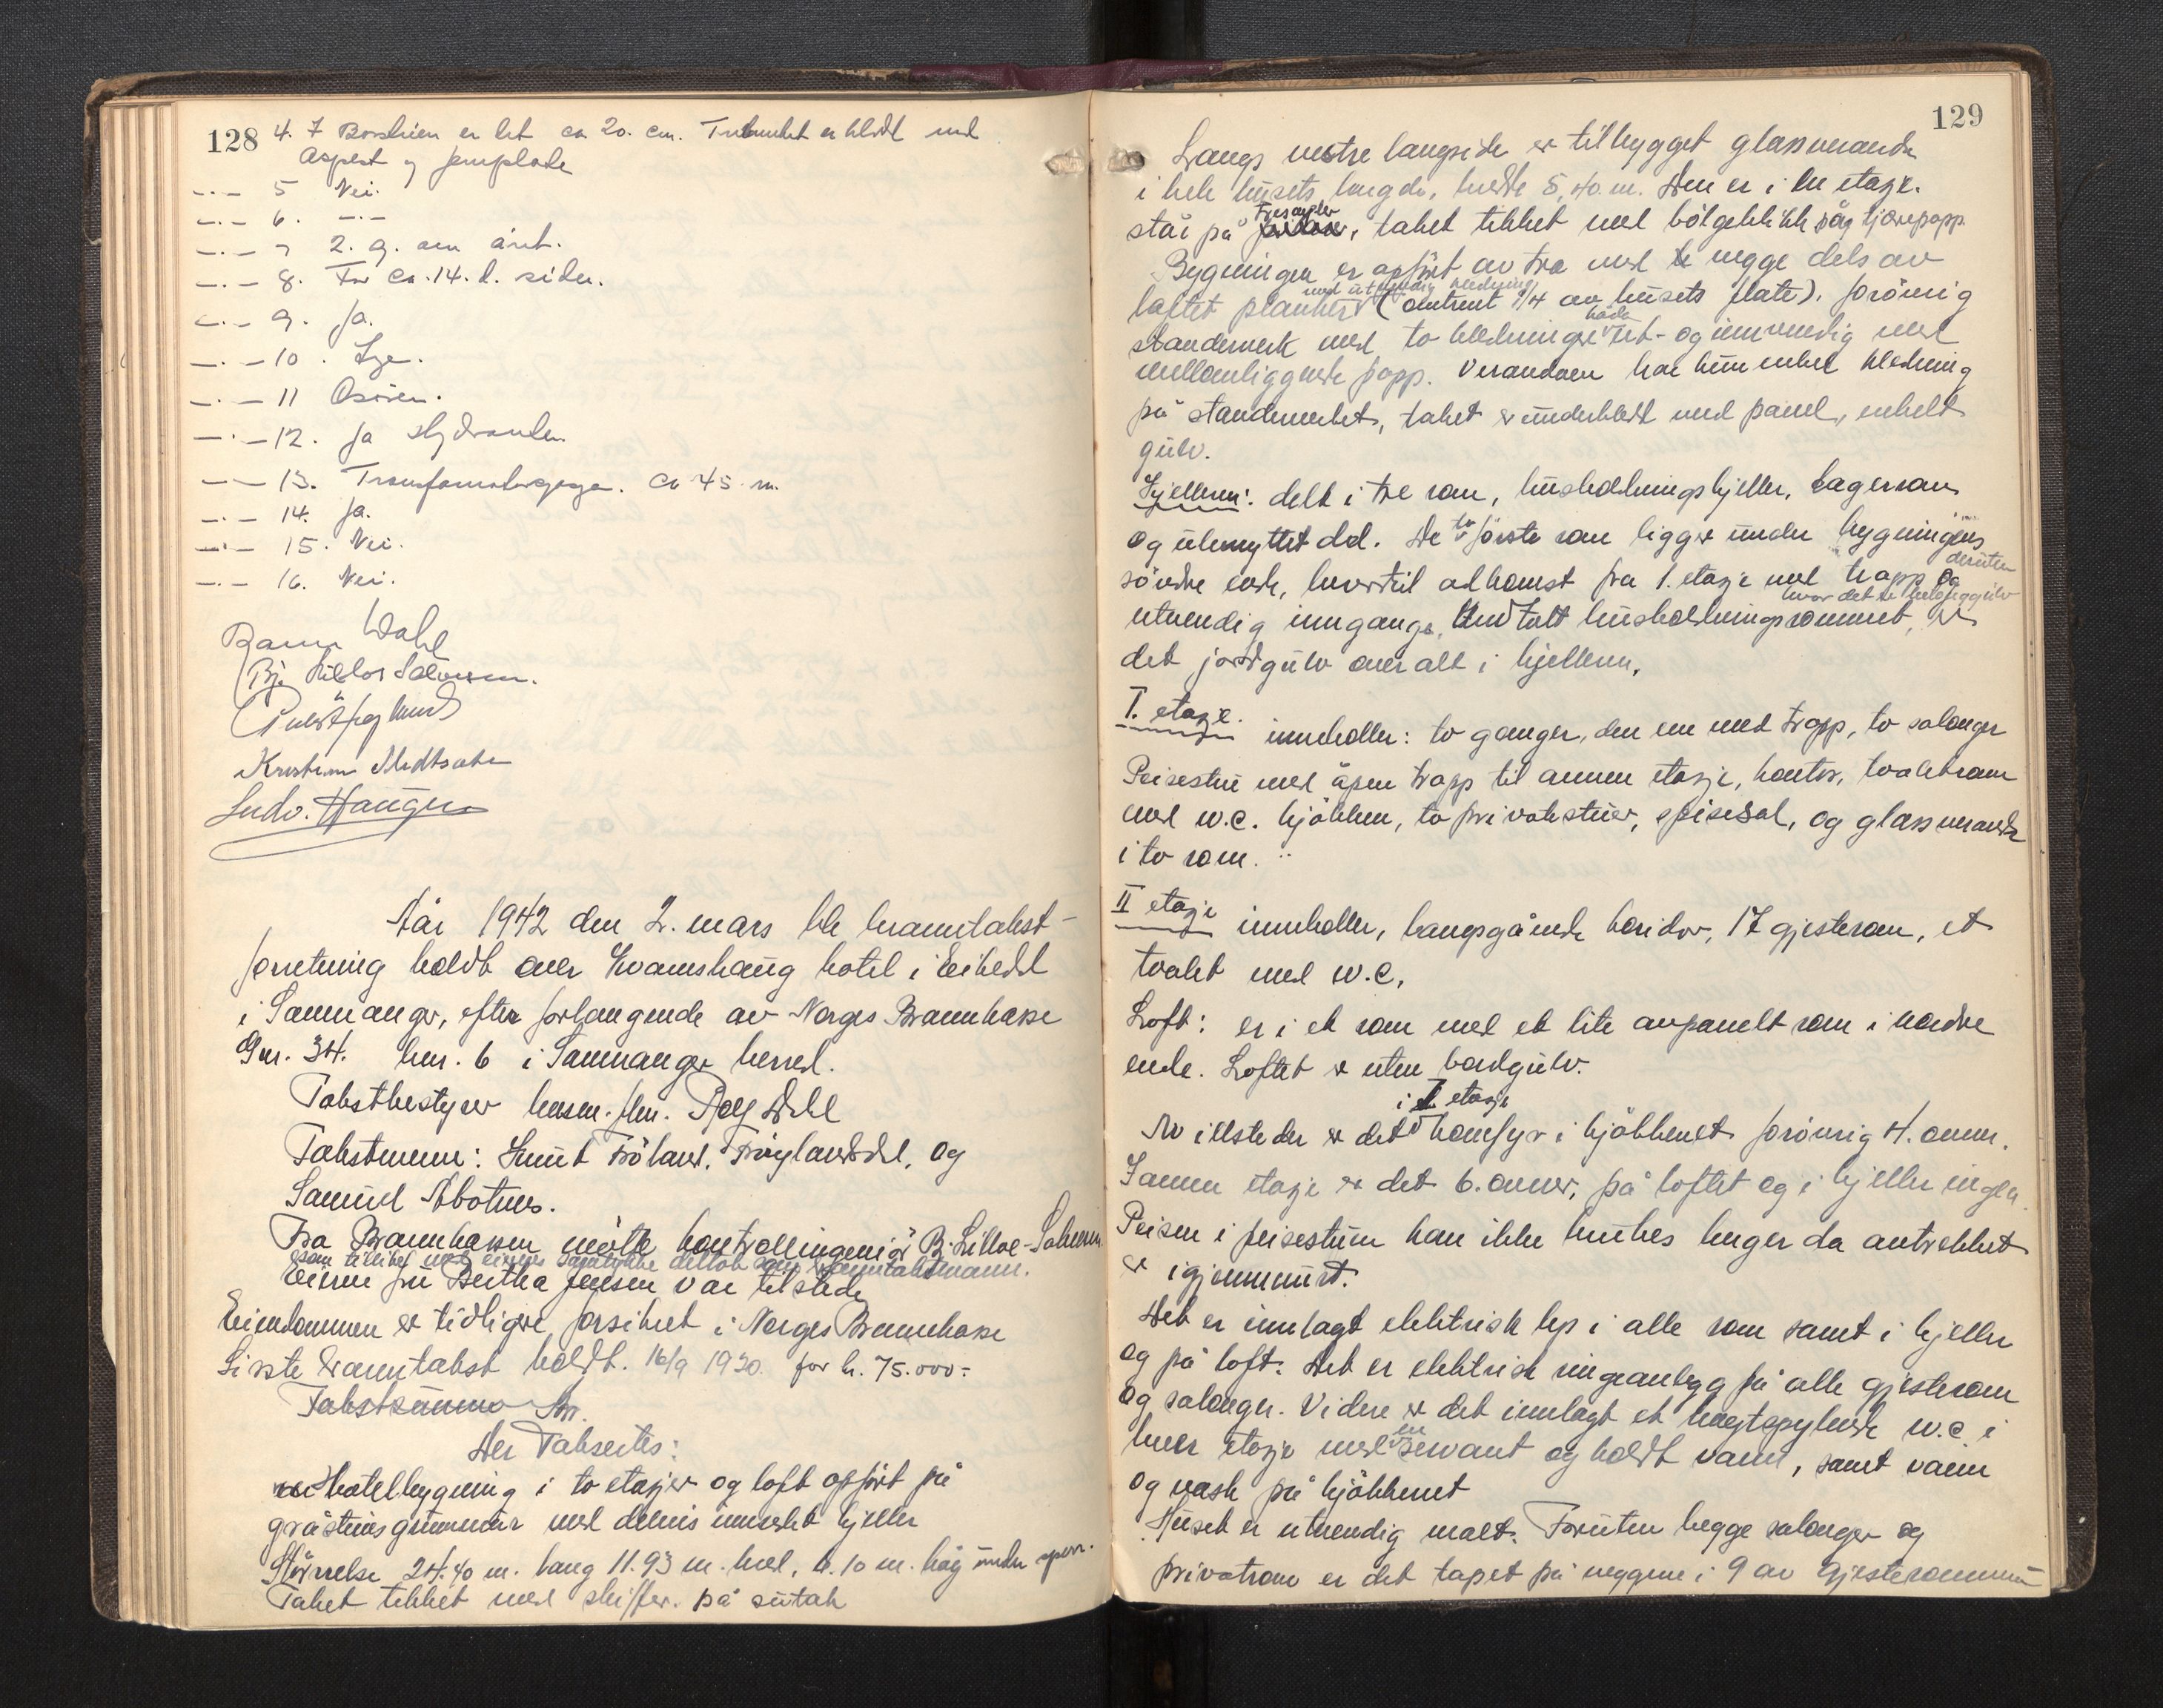 128
4. 7 Borstuen er let ca 20. cm. Trebundet er kledt med
Aspest og jernplade
-.- 5 Nei.
-.- 6. -.-
-.- 7 2. g. om året.
-.- 8. For ca. 14. d. siden.
-.- 9. Ja.
-.- 10. Lye.
-.- 11 Osören.
-.- 12. Ja Hydranten
-.- 13. ca 45 m.
-.- 14. Ja.
-.- 15. Nei.
-.- 16. Nei.
Wahl
Kristian Medtsater
Ludv. Haugen
År 1942 den 2. mars ble branntakst-
forretning holdt over Kvamshaug hotel i Eikedal
i Samnanger, efter forlangende av Norges Brannkasse
Gnr. 34. bnr. 6 i Samnanger herred.
Takstbestyrer lensm. flm. Rolf Dahl
Takstmenn: Knut Fröland, Fröylandsdal, og
Samuel Åbotnes.
Fra Brannkassen møtte kontrollingeniør B. Lilloe-Salvesen
som tillike med eierens samtykke deltok som branntakstmann.
Eieren fru Bertha Jensen var tilstede
Eiendommen er tidligere forsikret i Norges Brannkasse
Siste branntakst holdt. 16/9 1930. for kr. 75.000-
Der Takseres:
Hotelbygning i to etasjer og loft opført på
gråsteins grunnmur med delvis innredet kjeller
Størrelse 24.40 m. lang 11.93 m. bred, 6.10 m. høg under sperr.
Taket tekket med skiffer. på sutak
129
Langs vestre langside er tilbygget glassveranda
i hele husets lengde, bredde 5,40 m. Den er i en etasje.
står på , taket tekket med bølgeblikk og tjærepapp.
Bygningen er opført av tre med vegge dels av
med utvendig kledning
laftet planker (omtrent 1/4 av husets flate). forøvrig
både
standerverk med to kledninger ut- og innvendig med
mellomliggende papp. Verandaen har kun enkel kledning
på standerverket, taket er underkledt med panel, enkelt
gulv.
Kjelleren: delt i tre rom, husholdningskjeller, lagerrom
og ubenyttet del. De to første rom ligger under bygningens
søndre ende, hvortil adkomst fra 1. etasje med trapp og
desuten
utvendig inngange, Undtatt husholdningsrommet, er
hvor det er
det jordgulv overalt i kjelleren.
I. etasje. inneholler: to ganger, den ene med trapp, to salonger
Peisestue med åpen trapp til annen etasje, kontor, toaletrom
med w.c. kjøkken, to privatstuer, spisesal, og glassveranda
i to rom.
II etasje inneholler, langsgående koridor, 17 gjesterom, et
toalet med w.c.
Loft: er i et rom med et lite avpanelt rom i nordre
ende. Loftet er uten bordgulv.
i I. etasje
Av illsteder er det komfyr i kjøkkenet forøvrig 4. ovner.
I annen etasje er det 6. ovner, på loftet og i kjeller ingen.
Peisen i peisestuen kan ikke brukes lenger da avtrekket
er igjenmurt.
Det er innlagt elektrisk lys i alle rom samt i kjeller
og på loft. Det er elektrisk ringeanlegg på alle gjesterom
og salonger. Videre er det innlagt et w.c. i
hver etasje med en servant og koldt vann, samt vann
og vask på kjøkkenet
Huset er utvendig malt. Foruten begge salonger og
privatrom er det tapet på veggene i 9 av gjesterommene